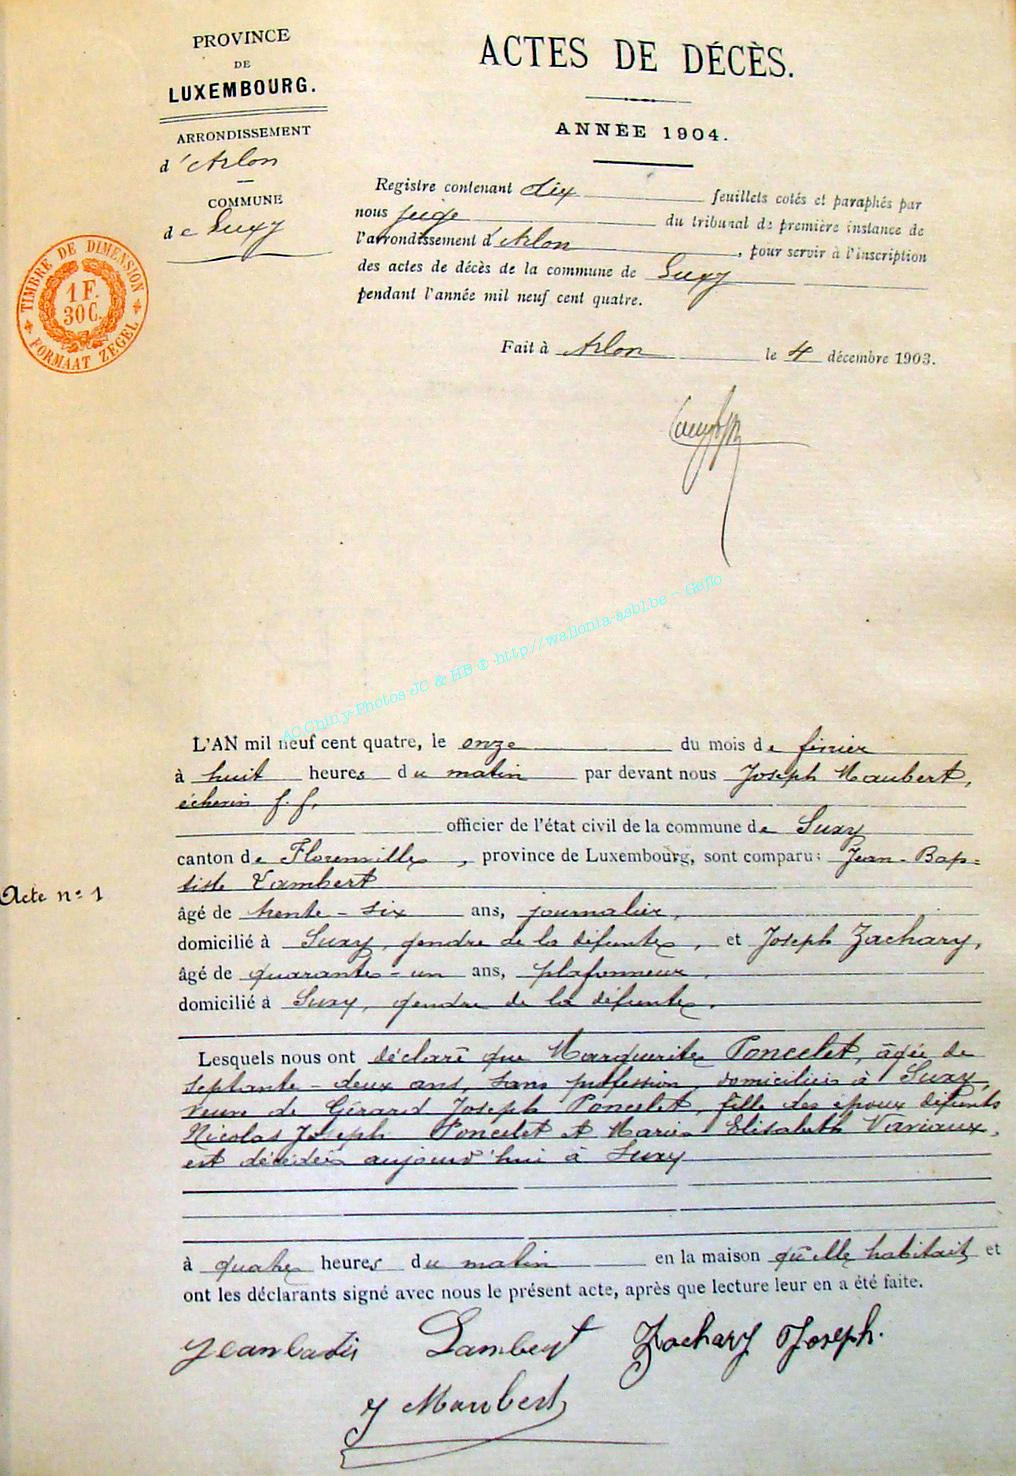 PROVINCE
DE
LUXEMBOURG.
ARRONDISSEMENT
d'Arlon
COMMUNE
de Suxy
TIMBRE DE DIMENSION
1 F.
30 C.
FORMAAT ZEGEL
ACTES DE DÉCÈS.
ANNÉE 1904.
Registre contenant dix feuillets cotés et paraphés par
nous juge du tribunal de première instance de
l'arrondissement d'Arlon, pour servir à l'inscription
des actes de décès de la commune de Suxy
pendant l'année mil neuf cent quatre.
Fait à Arlon le 4 décembre 1903.
AC Chiny-Photos JC & HB © -http://wallonia-asbl.be - Geflo
L'AN mil neuf cent quatre, le onze du mois de février
à huit heures du matin par devant nous Joseph Maubert,
échevin f. f.
officier de l'état civil de la commune de Suxy
canton de Florenville, province de Luxembourg, sont comparu: Jean-Bap=
tiste Lambert
Acte n: 1
âgé de trente-six ans, journalier,
domicilié à Suxy, gendre de la défunte, et Joseph Zachary,
âgé de quarante-un ans, plafonneur,
domicilié à Suxy, gendre de la défunte.
Lesquels nous ont déclaré que Marguerite Poncelet, âgée de
septante-deux ans, sans profession, domiciliée à Suxy,
veuve de Gérard Joseph Poncelet, fille des époux défunts
Nicolas Joseph Poncelet et Marie Elisabeth Variaux,
est décédée aujourd'hui à Suxy
à quatre heures du matin en la maison qu'elle habitait et
ont les déclarants signé avec nous le présent acte, après que lecture leur en a été faite.
Lambert Zachary Joseph.
J Maubert